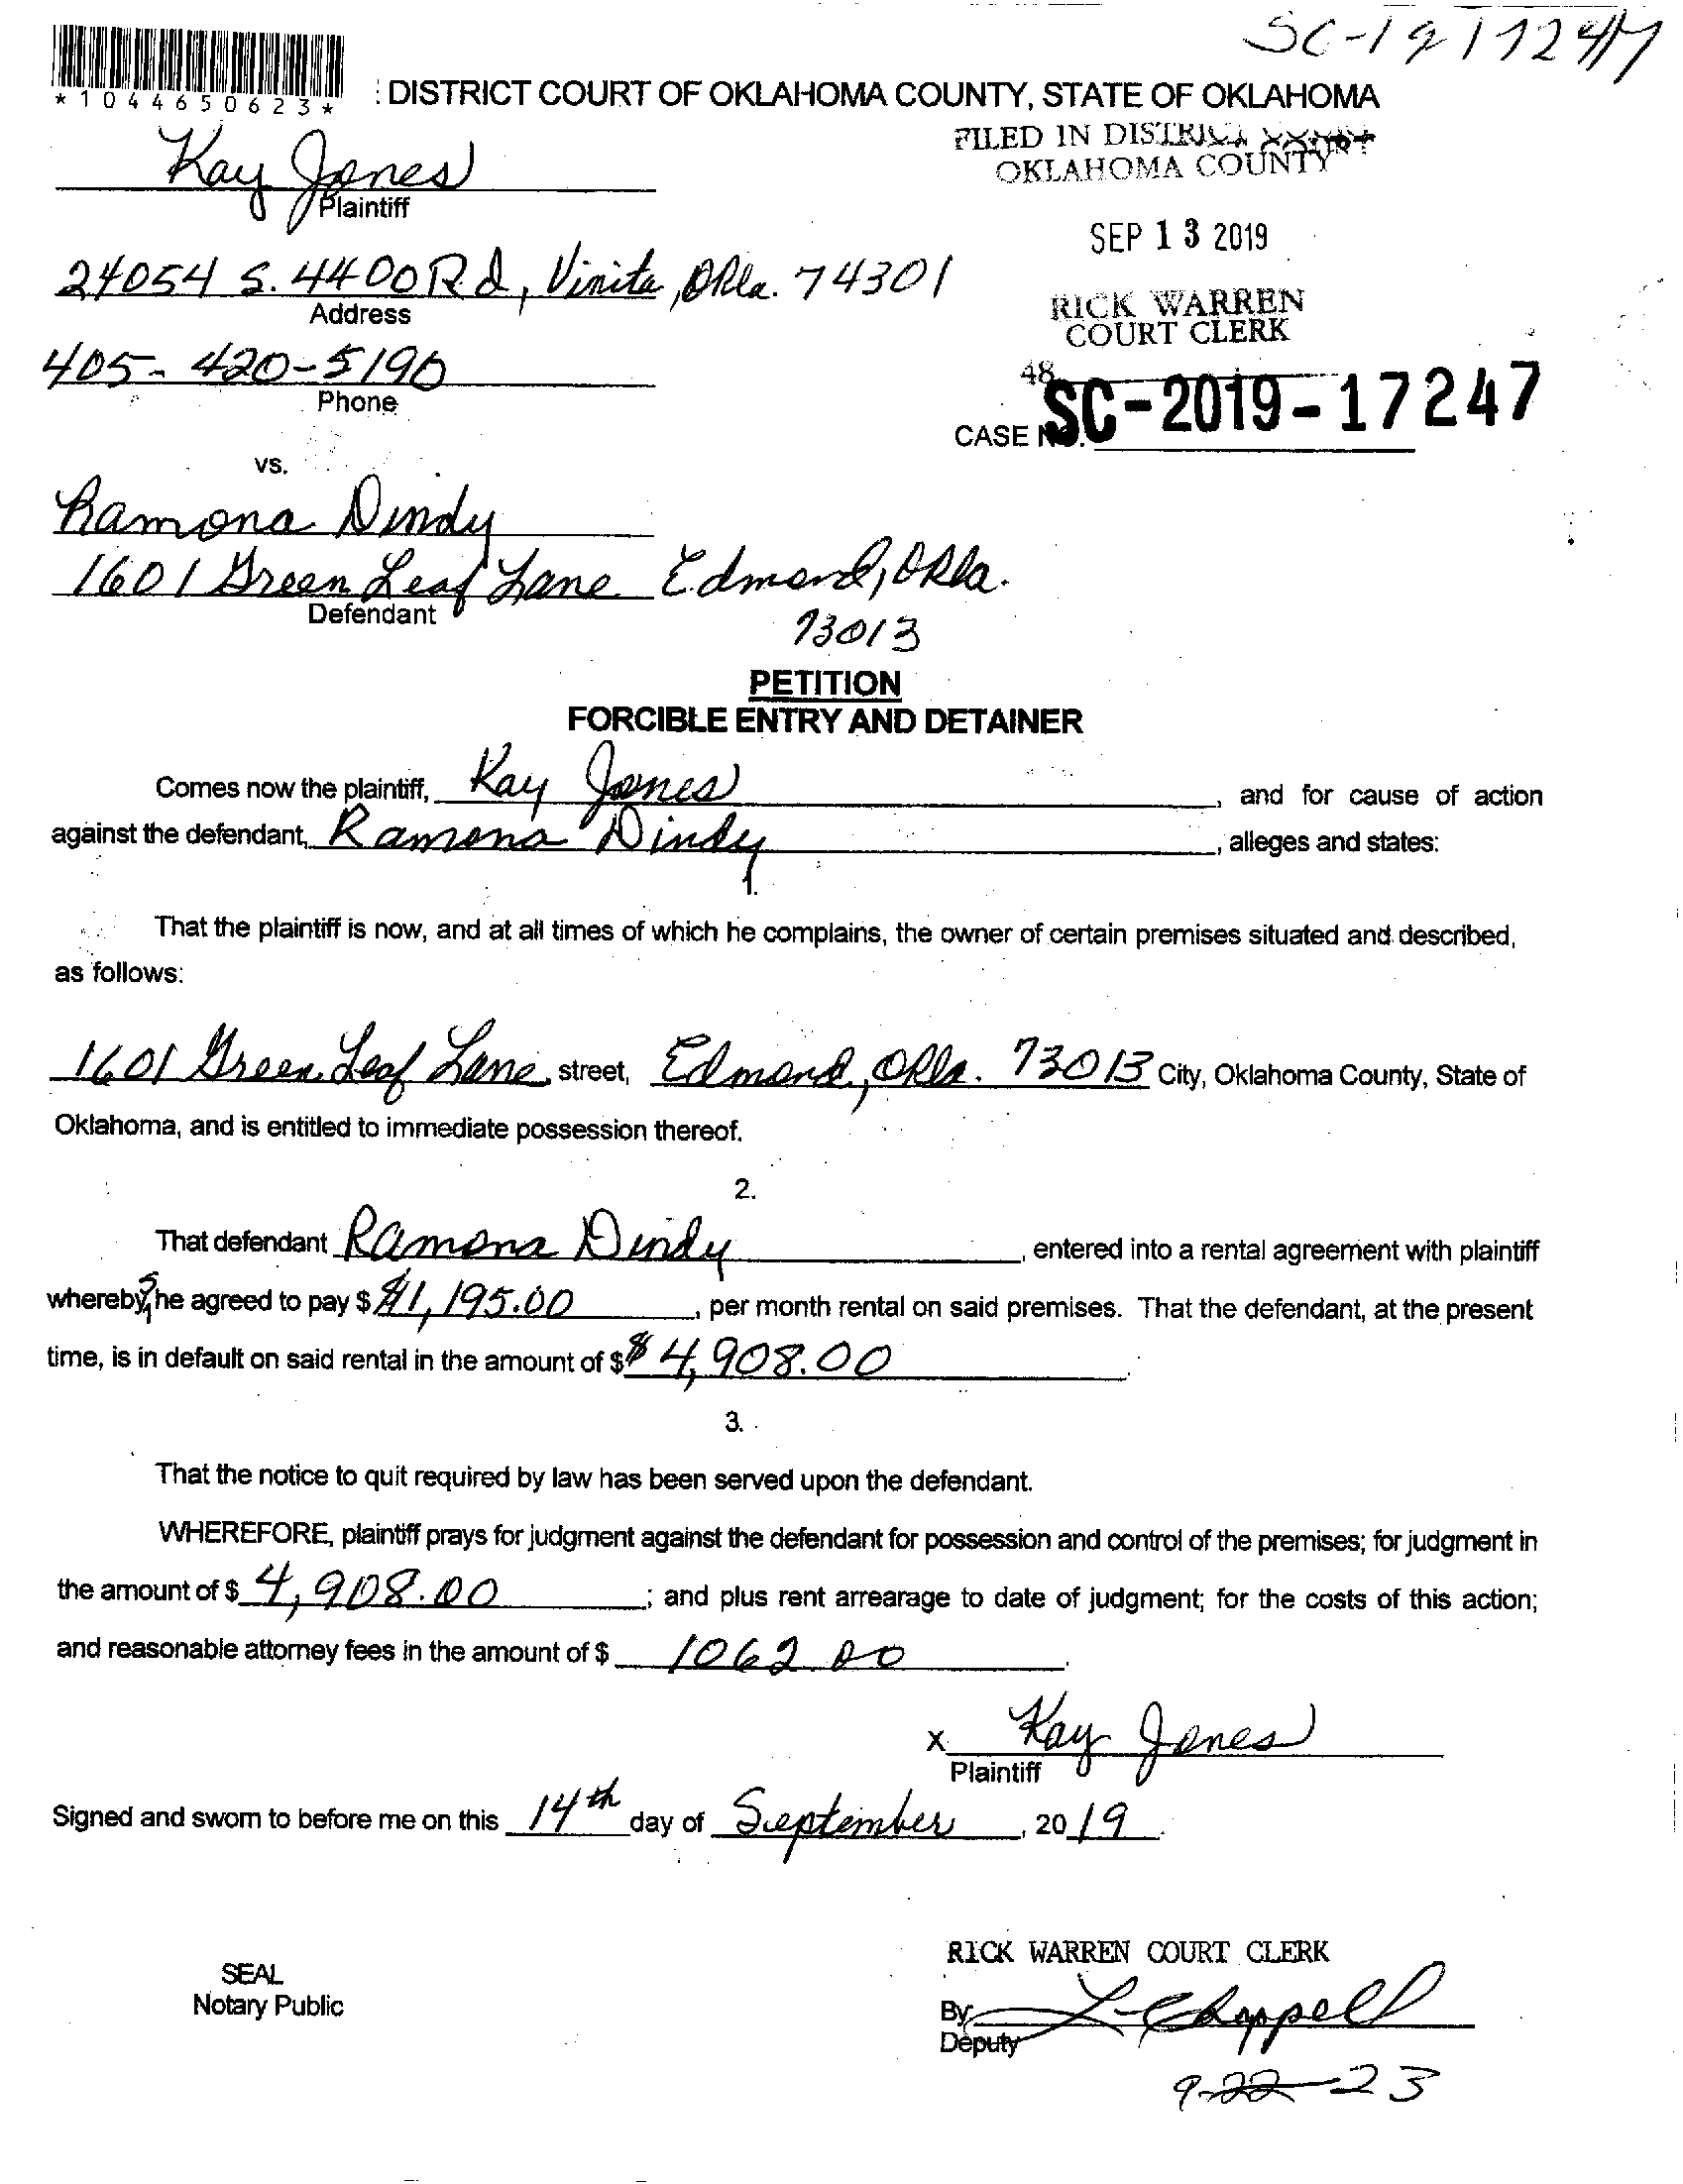 SC-19 17247
*1044650623*
: DISTRICT COURT OF OKLAHOMA COUNTY, STATE OF OKLAHOMA
FILED IN DISTRICT COURT
OKLAHOMA COUNTY
Kay Jones
Plaintiff
SEP 13 2019
24054 S. 4400 Rd, Vinita, Okla. 74301
Address
RICK WARREN
COURT CLERK
405-420-5190
Phone
48
CASE NO. SC-2019-17247
vs.
Ramona Dindy
1601 Green Leaf Lane Edmond, Okla.
Defendant
73013
PETITION
FORCIBLE ENTRY AND DETAINER
Comes now the plaintiff, Kay Jones, and for cause of action
against the defendant, Ramona Dindy, alleges and states:
1.
That the plaintiff is now, and at all times of which he complains, the owner of certain premises situated and described,
as follows:
1601 Green Leaf Lane street, Edmond, Okla. 73013 City, Oklahoma County, State of
Oklahoma, and is entitled to immediate possession thereof.
2.
That defendant Ramona Dindy, entered into a rental agreement with plaintiff
whereby she agreed to pay $ $1,195.00, per month rental on said premises. That the defendant, at the present
time, is in default on said rental in the amount of $ $4,908.00.
3.
That the notice to quit required by law has been served upon the defendant.
WHEREFORE, plaintiff prays for judgment against the defendant for possession and control of the premises; for judgment in
the amount of $ 4,908.00; and plus rent arrearage to date of judgment; for the costs of this action;
and reasonable attorney fees in the amount of $ 1062.00.
x Kay Jones
Plaintiff
Signed and sworn to before me on this 14th day of September, 2019.
RICK WARREN COURT CLERK
SEAL
Notary Public
By L Chappell
Deputy
9-22-23